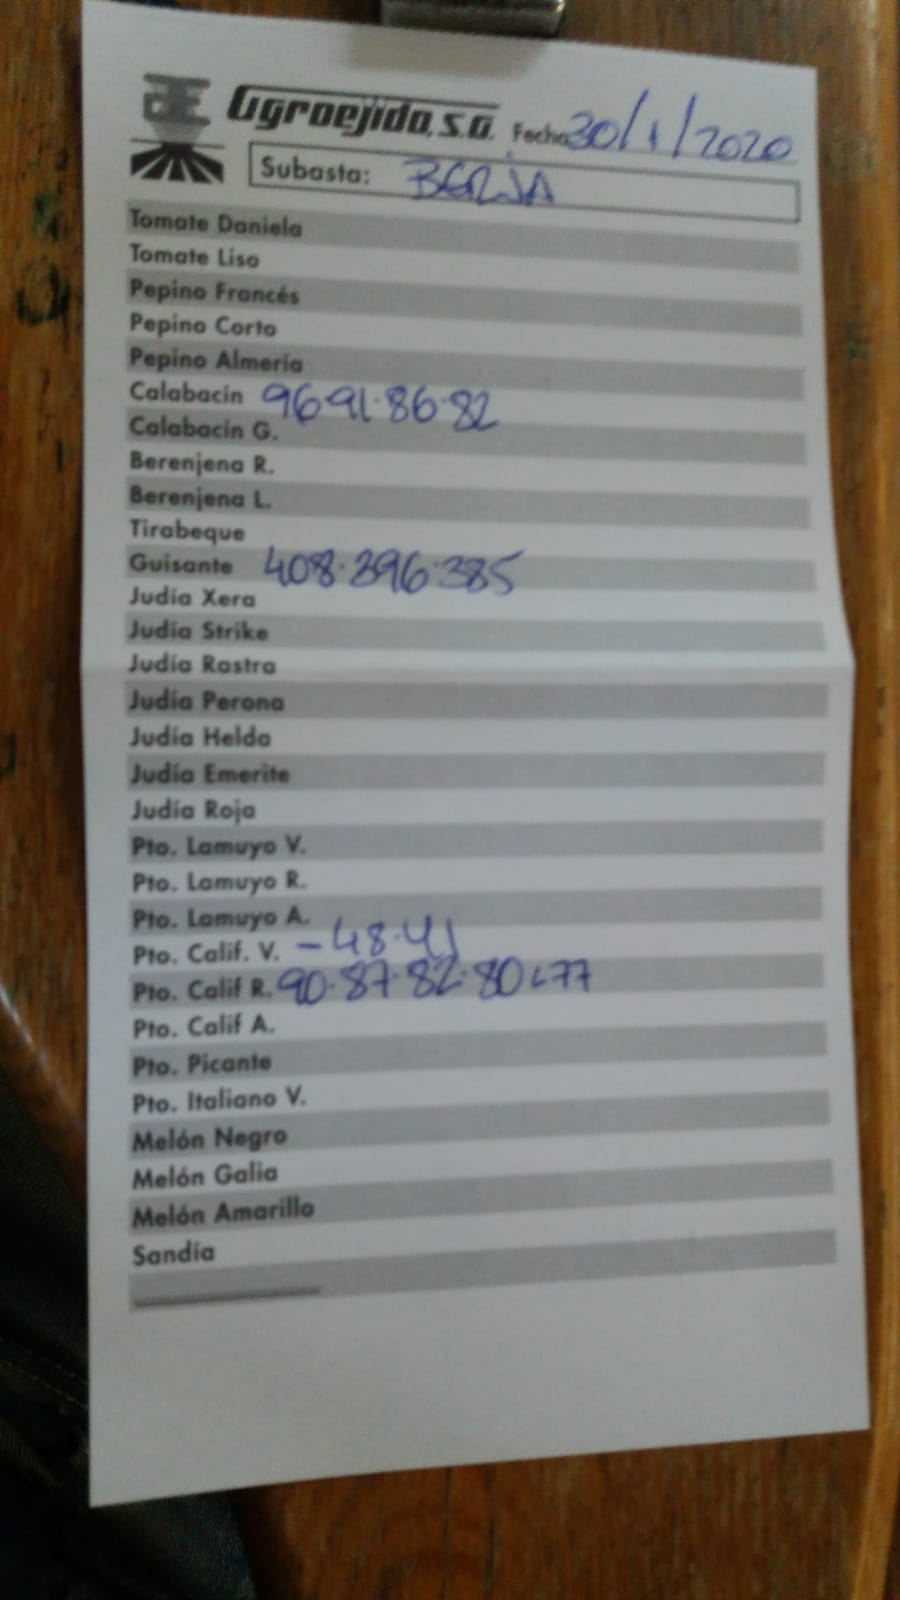 Agroejido, S.A. Fecha 30/1/2020
Subasta: BERJA
Tomate Daniela
Tomate Liso
Pepino Francés
Pepino Corto
Pepino Almería
Calabacín 96·91·86·82
Calabacín G.
Berenjena R.
Berenjena L.
Tirabeque
Guisante 408·396·385
Judía Xera
Judía Strike
Judía Rastra
Judía Perona
Judía Helda
Judía Emerite
Judía Roja
Pto. Lamuyo V.
Pto. Lamuyo R.
Pto. Lamuyo A.
Pto. Calif. V. - 48·41
Pto. Calif R. 90·87·82·80·77
Pto. Calif A.
Pto. Picante
Pto. Italiano V.
Melón Negro
Melón Galia
Melón Amarillo
Sandía